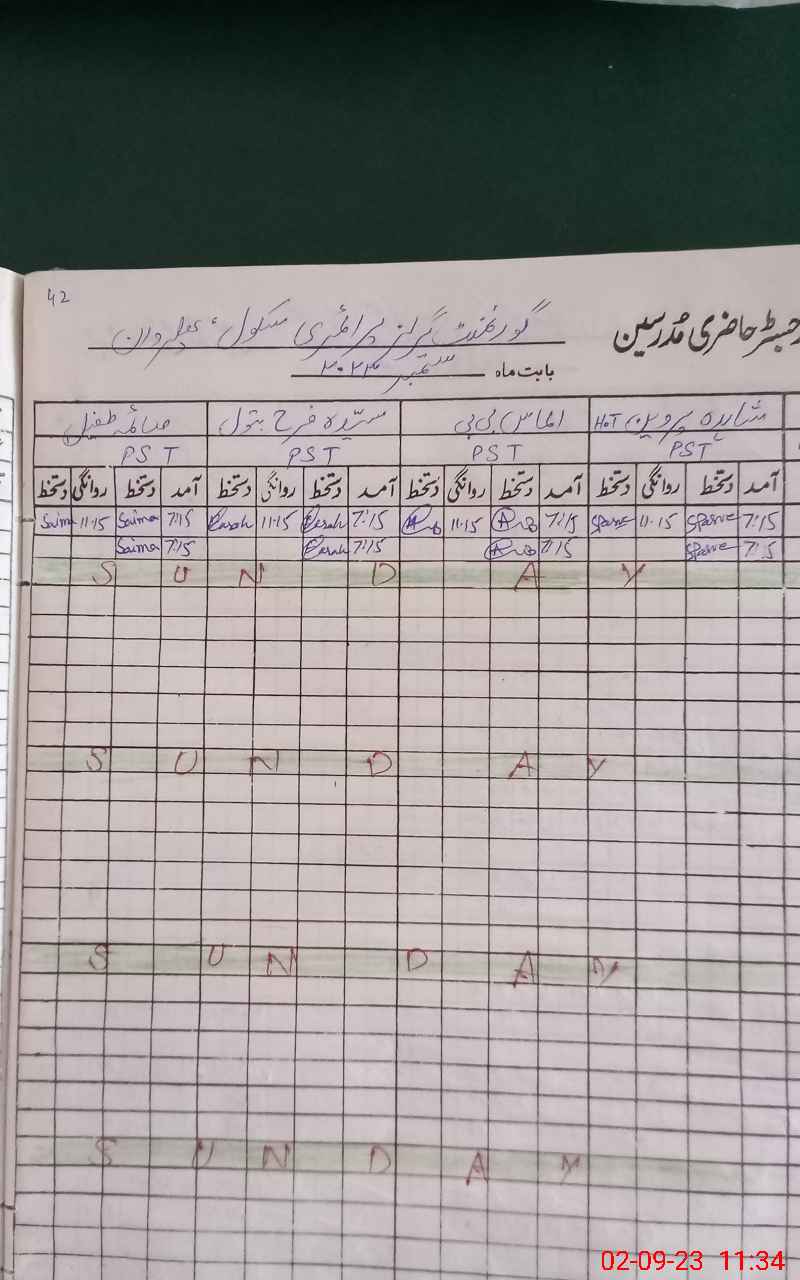 42
رجسٹر حاضری مُدرسین گورنمنٹ گرلز پرائمری سکول،
بابت ماہ ستمبر ۲۰۲۳
شاہدہ پروین HOT الماس بی بی سیّدہ فرح بتول صائمہ طفیل
PST PST PST PST
آمد دستخط روانگی دستخط آمد دستخط روانگی دستخط آمد دستخط روانگی دستخط آمد دستخط روانگی دستخط
Saima 11-15 Saima 7:15 Farah 11-15 Farah 7:15 11-15 7:15 11-15 7:15
Saima 7:15 Farah 7:15 7:15 7:15
SUNDAY
SUNDAY
SUNDAY
SUNDAY
02-09-23 11:34